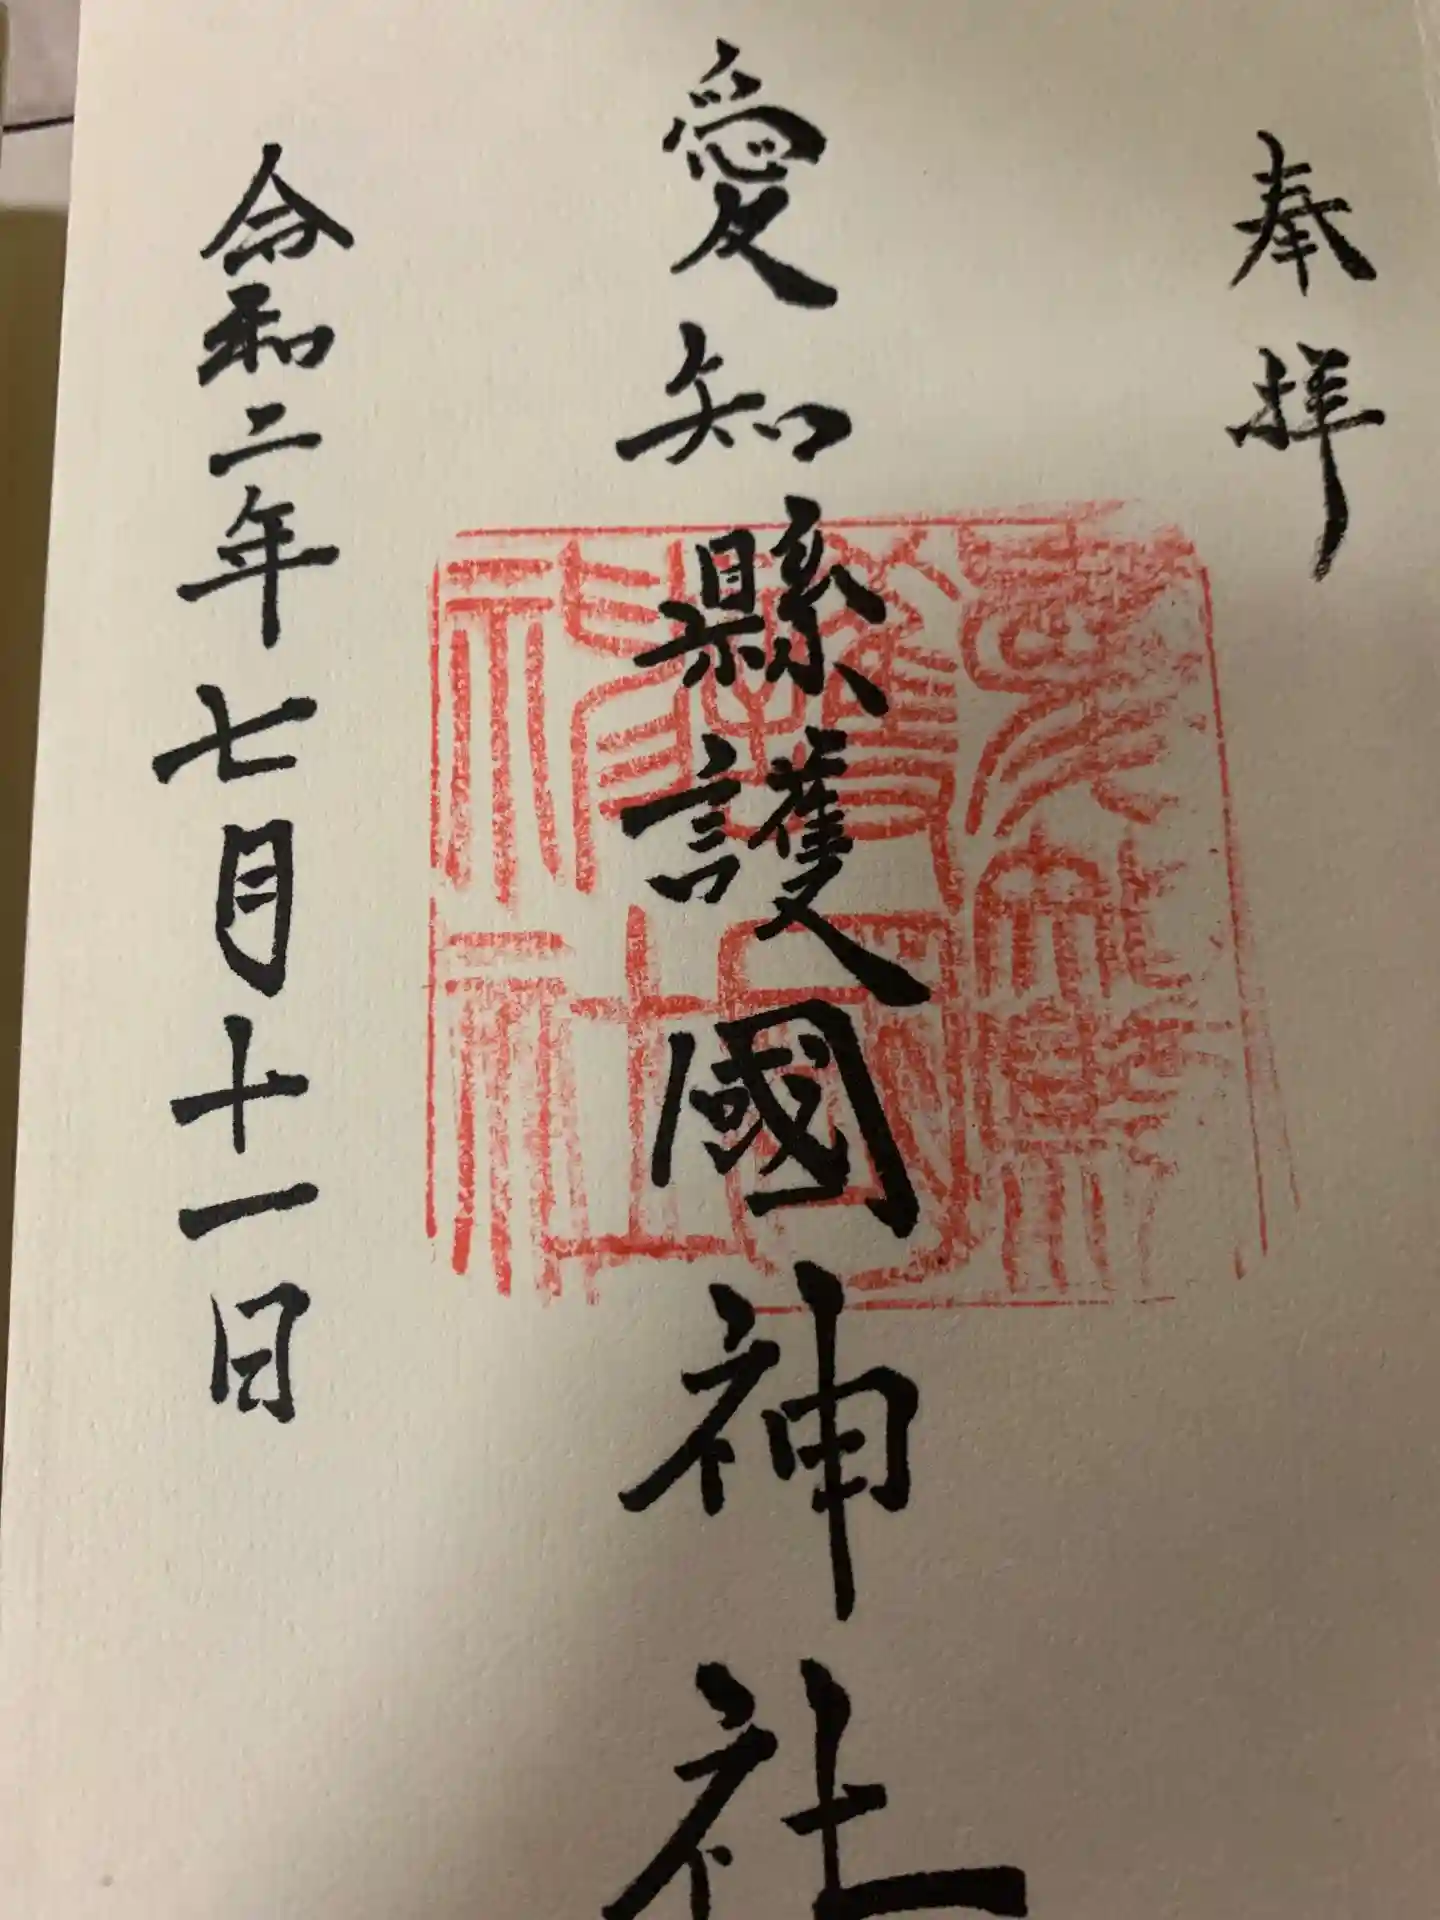 奉拝
愛知縣護國神社
令和二年七月十一日